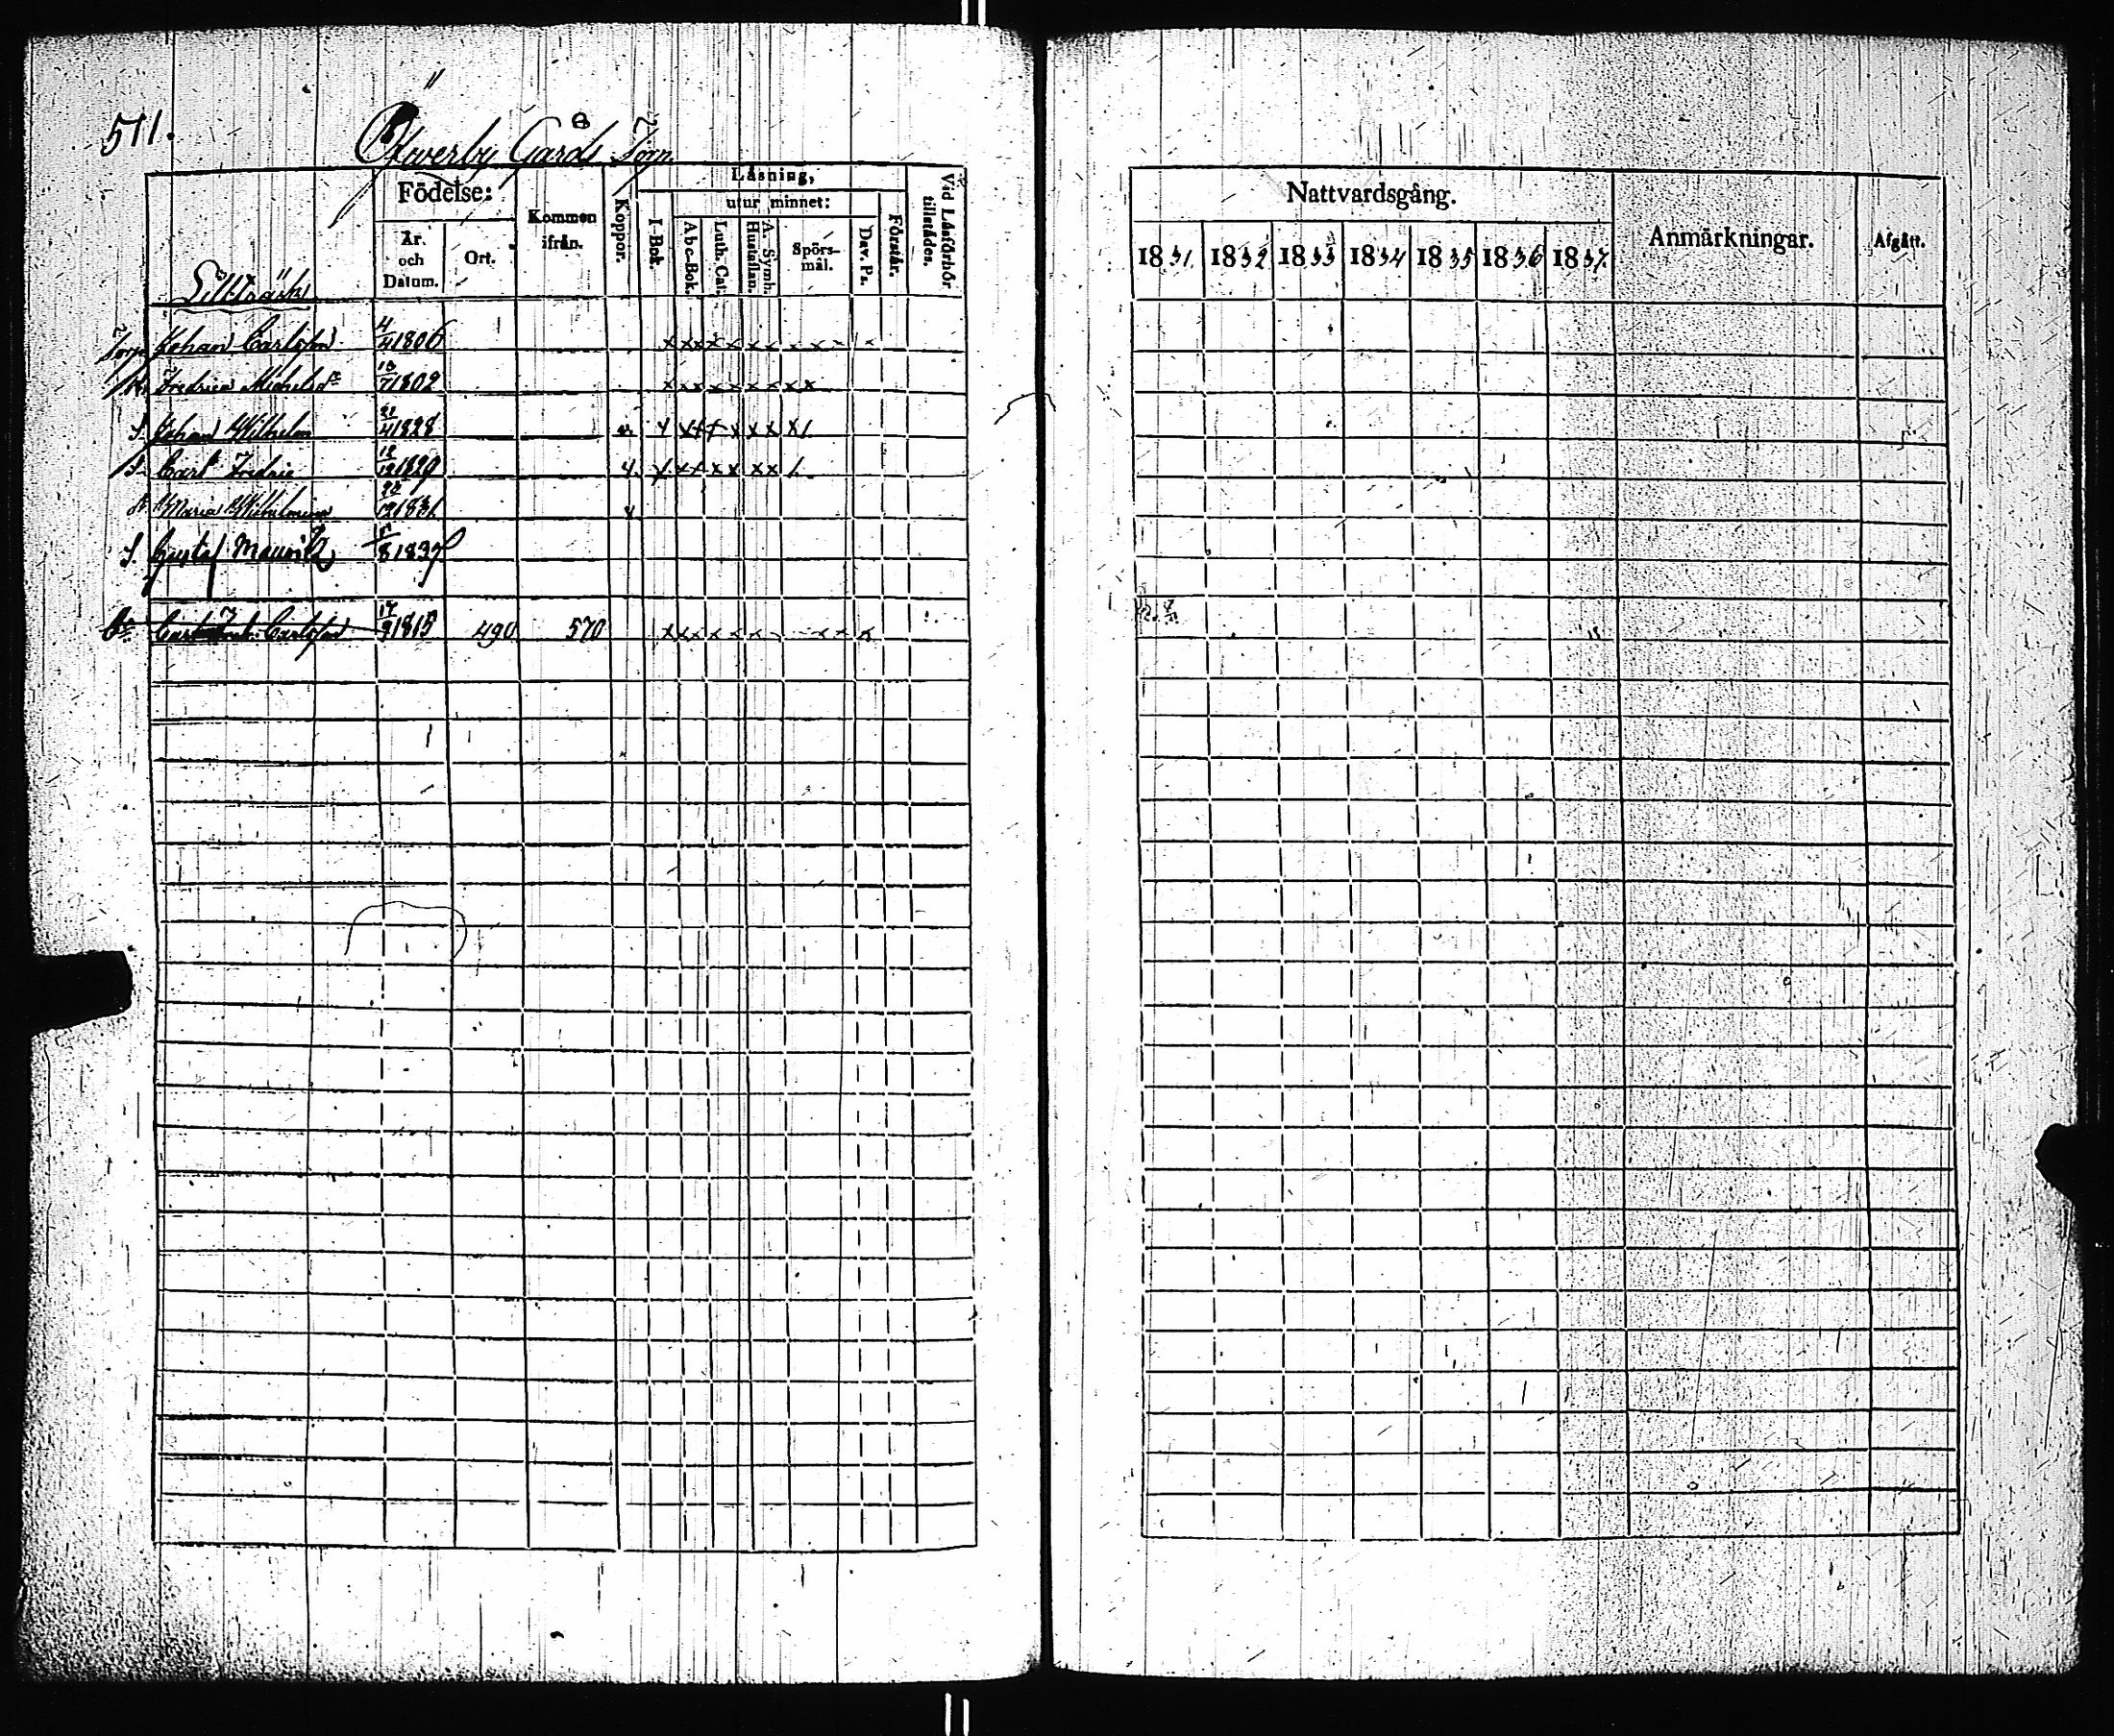 511.
Öfwerby Gårds Torp
Födelse:
Kommen ifrån.
Koppor.
Läsning,
utur minnet:
I-Bok.
Abc-Bok.
Luth. Cat.
Hustaflan.
A. Symb.
Spörsmål.
Dav. Ps.
Förstår.
Vid Läsförhör tillstädes.
År. och Datum.
Ort.
Lillträsk
Torp. Johan Carlsson 4/4 1806 x x x x x x x x x x x
H. Fredrica Michelsdr 10/7 1802 x x x x x x x x x
S. Johan Wilhelm 21/4 1828 x x x x x x x
S. Carl Fredric 12/12 1829 x x x x x x
D. Maria Wilhelmina 23/12 1831
S. Gustaf Mauritz 5/8 1837
Carl Fredr. Carlsson 17/9 1815 490 570 x x x x x x x x x
Nattvardsgång.
Anmärkningar.
Afgått.
1831. 1832 1833 1834 1835 1836 1837.